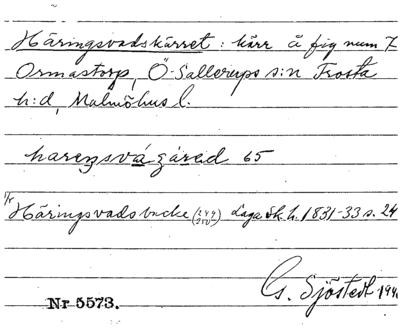 Häringsvadskärret : kärr å fig num 7
Ormastorp, Ö-Sallerups s:n Frosta
h:d, Malmöhus l.
65
Häringsvadsbacke Laga Sk. h. 1831-33 s. 24
G. Sjöstedt
Nr 5573.